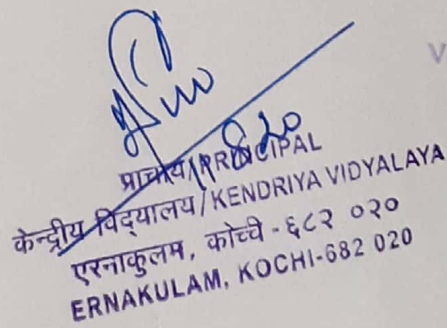 प्राचार्य/PRINCIPAL
केन्द्रीय विद्यालय/KENDRIYA VIDYALAYA
एरनाकुलम, कोच्ची - ६८२ ०२०
ERNAKULAM, KOCHI-682 020